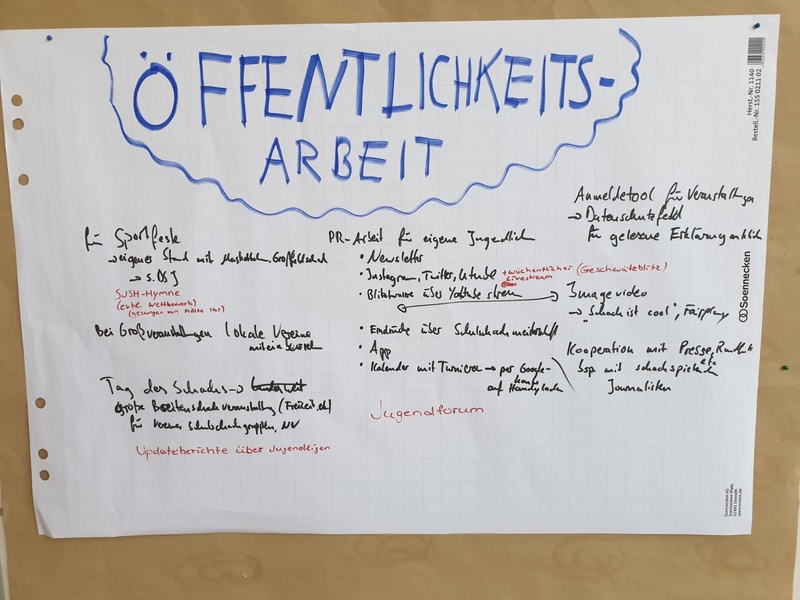 ÖFFENTLICHKEITS-
ARBEIT
für Sportfeste
→ eigener Stand mit Großfeldschach
→ s. DSJ
SJSH-Hymne
(evtl. Wettbewerb)
(gesungen von Malte Ihs)
Bei Großveranstaltungen lokale Vereine
mit
Tag des Schachs →
große Breitenschachveranstaltung (Freiheit, etc)
für Vereine Schulschachgruppen, NV
Updateberichte über Jugendligen
PR-Arbeit für eigene Jugendliche
• Newsletter
• Instagram, Twitter, Youtube + wöchentlicher (Geschwäteblitz)
Livestream
• Blitzturniere über Youtube
• Eindrücke über Schulschachmeisterschaft
• App
• Kalender mit Turnieren → per Google-
auf Handy laden
Jugendforum
Anmeldetool für Veranstaltungen
→ Datenschutzfeld
für gelesene Erklärung anklicken
Imagevideo
→ "Schach ist cool", Fairplay
Kooperation mit Presse, Rundfunk
etc
bsp mit schachspielenden
Journalisten
Herst.-Nr. 1140
Bestell.-Nr. 155 0211 02
Soennecken